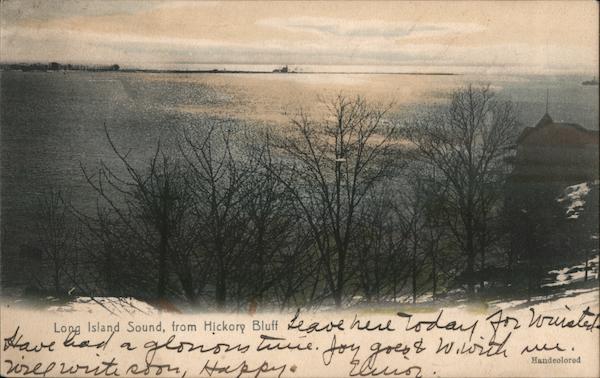 Long Island Sound, from Hickory Bluff
Leave here Today for Winsted
Have had a glorious time. Joy goes to W. with me.
Handcolored
Will write soon, Happy. Elinor.